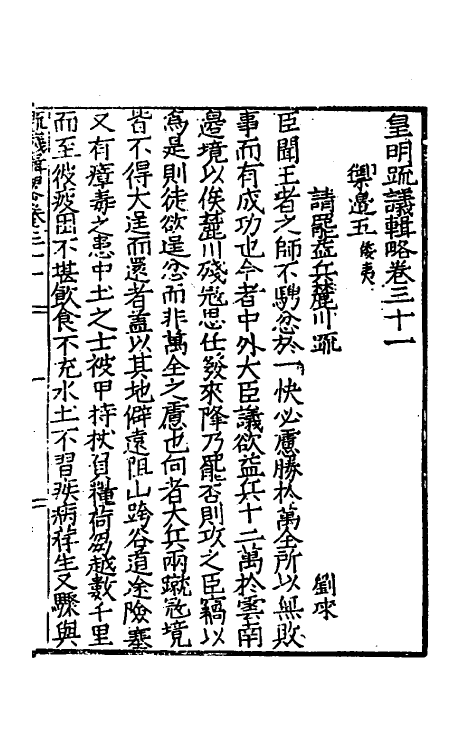 皇明疏議輯略卷三十一
禦邊五 倭夷
請罷益兵麓川疏 劉球
臣聞王者之師不騁忿於一快必慮勝於萬全所以無敗
事而有成功也今者中外大臣議欲益兵十二萬於雲南
邊境以俟麓川殘寇思任發來降乃罷否則攻之臣竊以
為是則徒欲逞忿而非萬全之慮也向者大兵兩蹴寇境
皆不得大逞而還者蓋以其地僻遠阻山跨谷道途險塞
又有瘴毒之患中土之士被甲持杖負糧荷芻越數千里
而至彼疲困不堪飲食不充水土不習疾病荐生又驟與
疏議輯略卷三十一
一